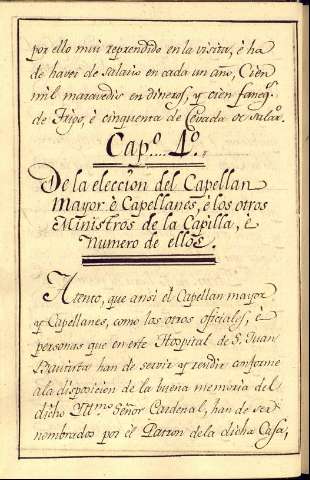 por ello mui reprendido en la visita, è ha
de haver de salario en cada un año, Cien
mil maravedis en dineros, y cien faneg.s
de Trigo, è cinquenta de Cevada de salar.o
Cap.o .... 4.o
De la eleccion del Capellan
Mayor è Capellanes, è los otros
Ministros de la Capilla, è
Numero de ellos.
Atento, que ansi el Capellan mayor
y Capellanes, como los otros oficiales, è
personas que en este Hospital de S. Juan
Bautista han de servir y rendir conforme
a la disposicion de la buena memoria del
dicho Yll.mo Señor Cardenal, han de ser
nombrados por el Patron de la dicha Casa,